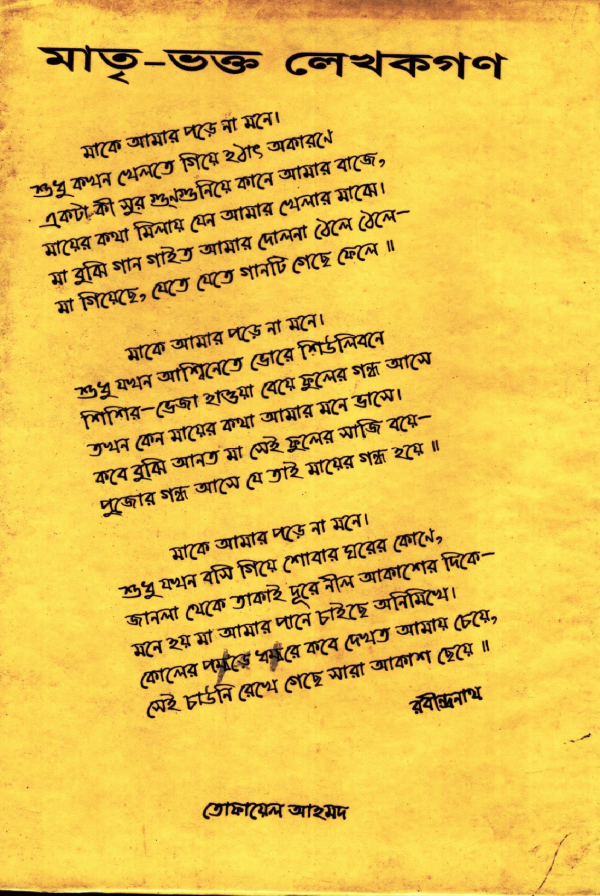 মাতৃ-ভক্ত লেখকগণ
মাকে আমার পড়ে না মনে।
শুধু কখন খেলতে গিয়ে হঠাৎ অকারণে
একটা কী সুর গুনগুনিয়ে কানে আমার বাজে,
মায়ের কথা মিলায় যেন আমার খেলার মাঝে।
মা বুঝি গান গাইত আমার দোলনা ঠেলে ঠেলে–
মা গিয়েছে, যেতে যেতে গানটি গেছে ফেলে ॥
মাকে আমার পড়ে না মনে।
শুধু যখন আশ্বিনেতে ভোরে শিউলিবনে
শিশির–ভেজা হাওয়া বেয়ে ফুলের গন্ধ আসে
তখন কেন মায়ের কথা আমার মনে ভাসে।
কবে বুঝি আনত মা সেই ফুলের সাজি বয়ে–
পুজোর গন্ধ আসে যে তাই মায়ের গন্ধ হয়ে ॥
মাকে আমার পড়ে না মনে।
শুধু যখন বসি গিয়ে শোবার ঘরের কোণে,
জানলা থেকে তাকাই দূরে নীল আকাশের দিকে–
মনে হয় মা আমার পানে চাইছে অনিমিখে।
কোলের কবে দেখত আমায় চেয়ে,
সেই চাউনি রেখে গেছে সারা আকাশ ছেয়ে ॥
রবীন্দ্রনাথ
তোফায়েল আহমদ